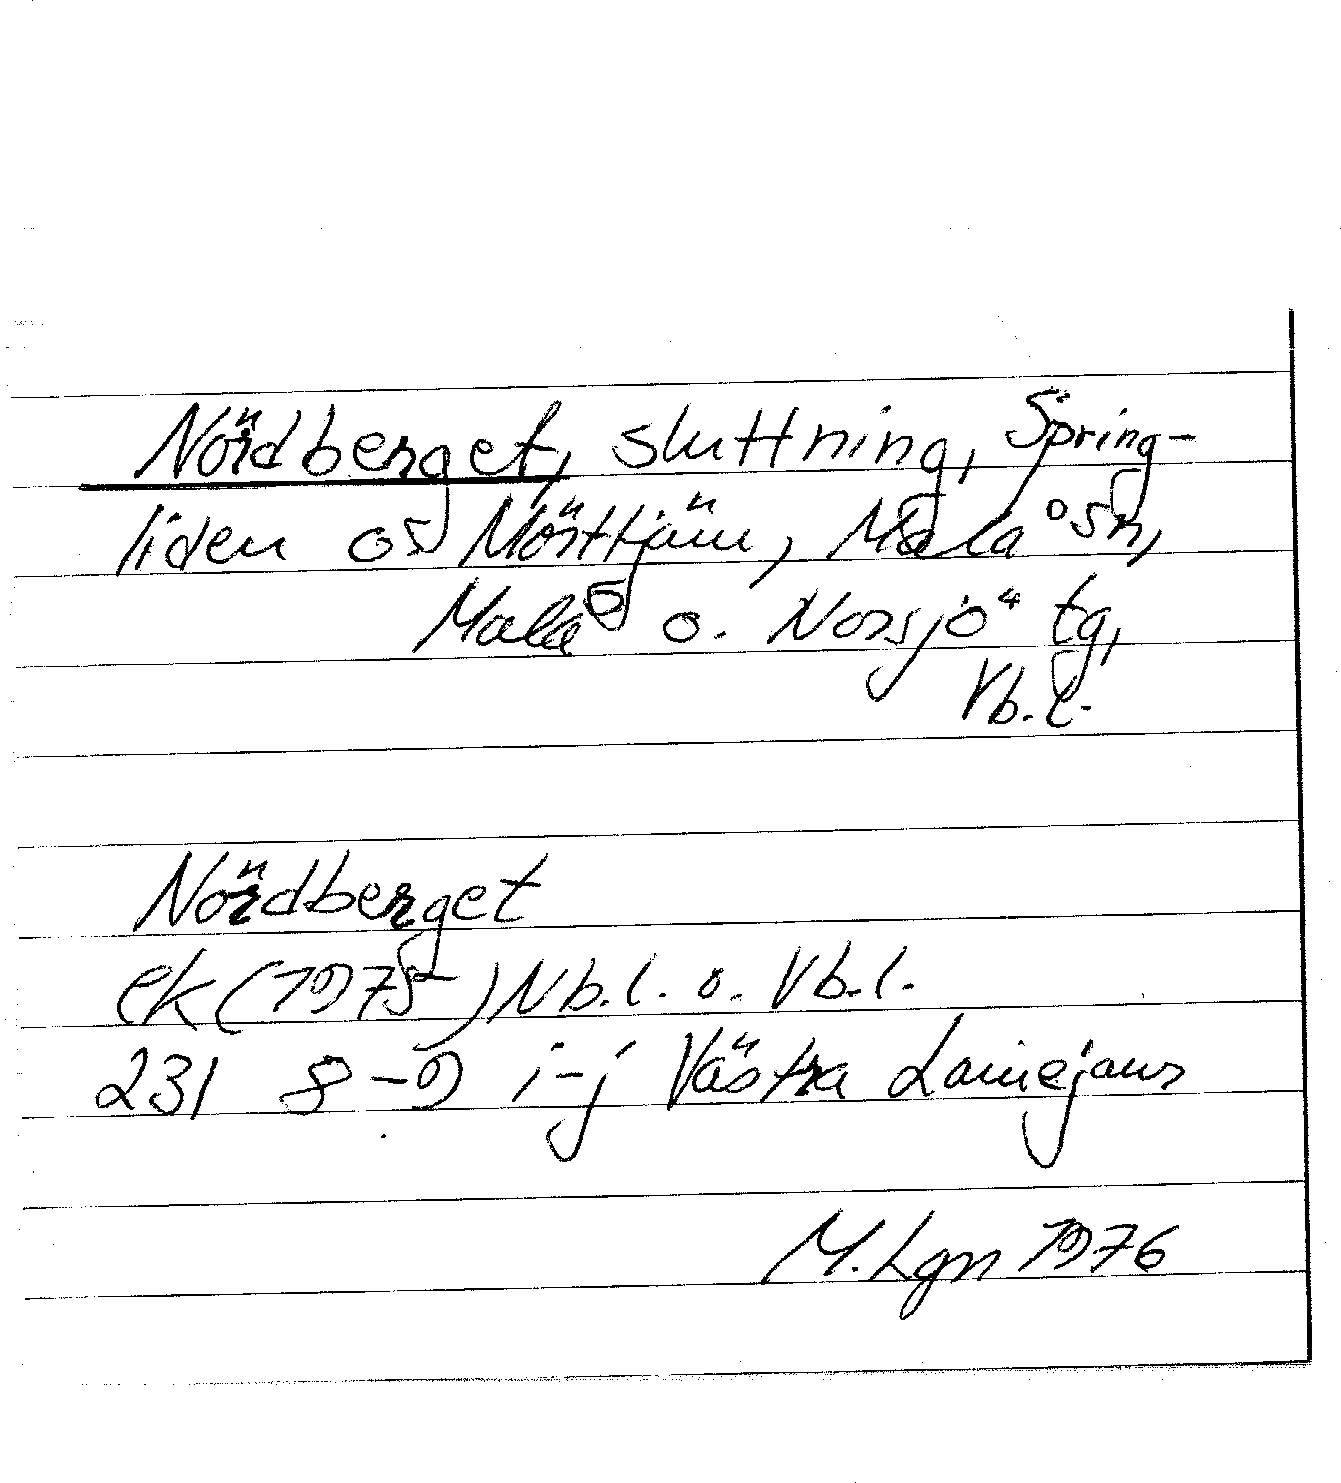 Nördberget, sluttning, Spring-
liden os Mörttjärn, Malå sn,
Malå o. Norsjö tg,
Vb.l.
Nördberget
ek (1975) Nb.l. o. Vb.l.
231 8-9 i-j Västra Lainejaur
M. Lgn 1976